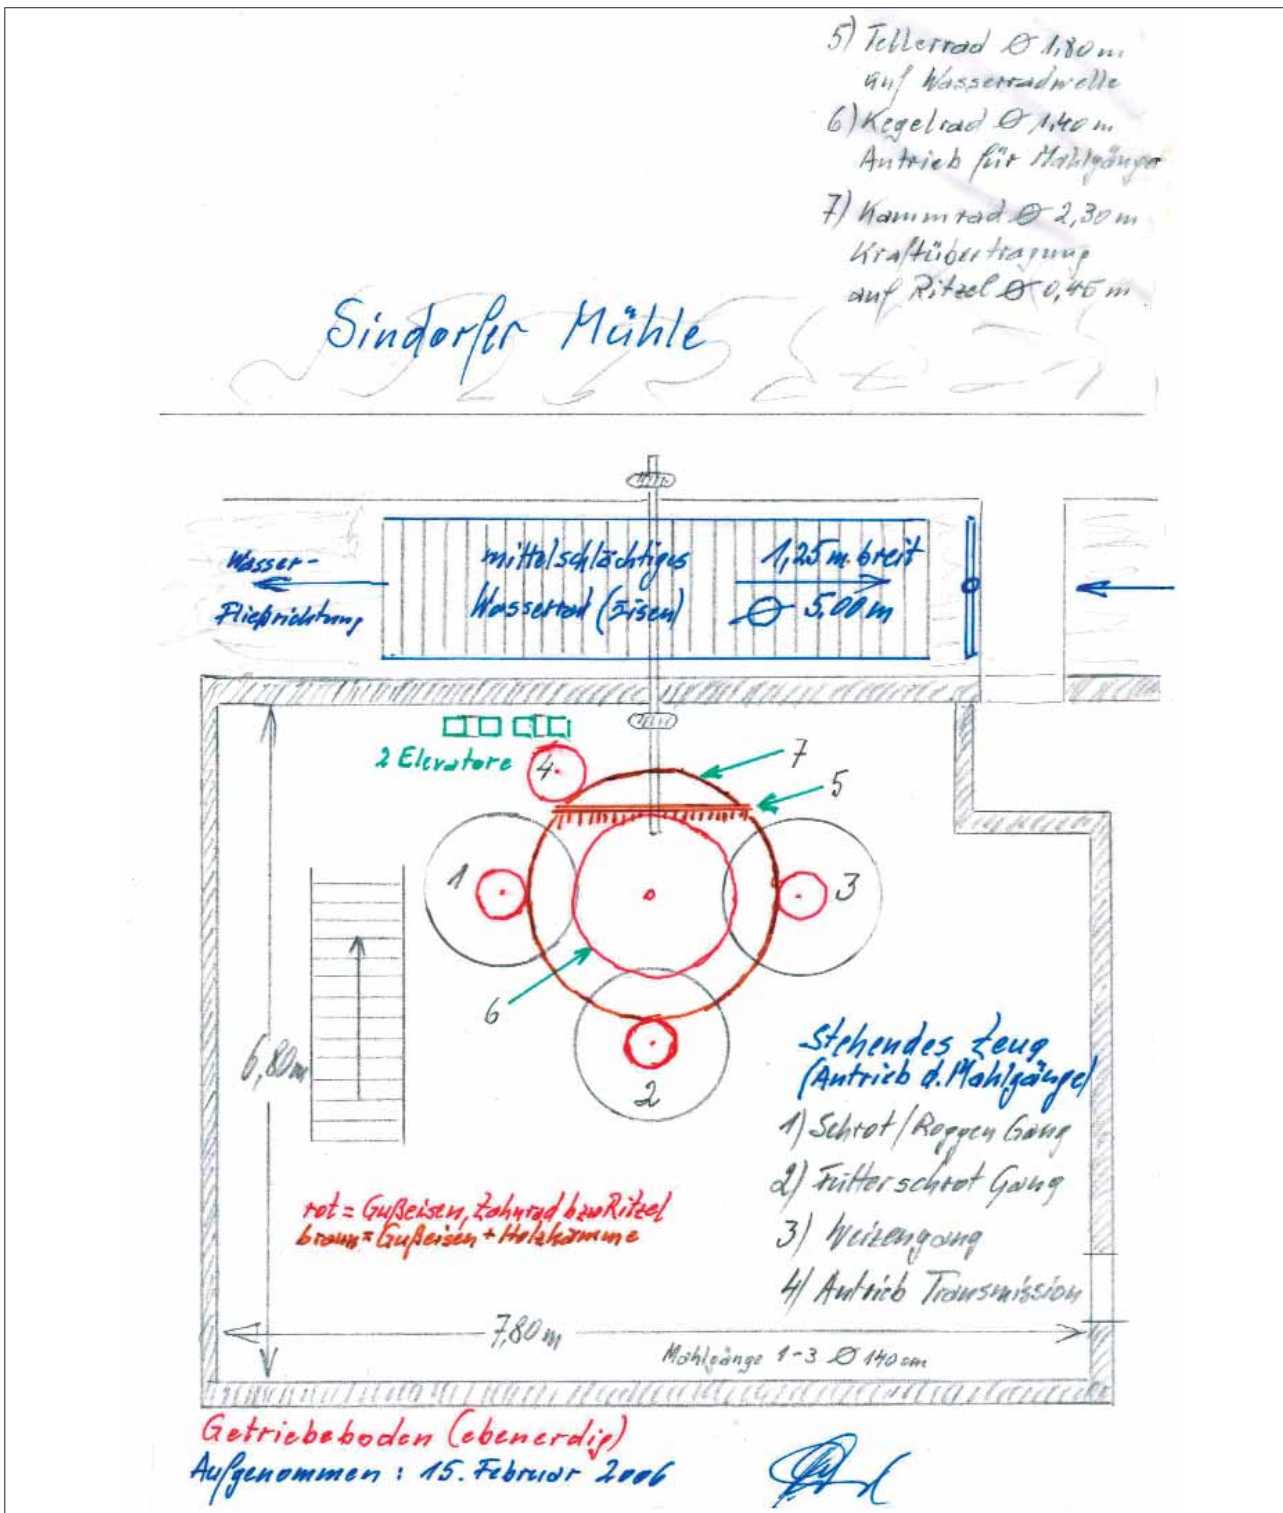 5) Tellerrad Ø 1,80 m
auf Wasserradwelle
6) Kegelrad Ø 1,40 m
Antrieb für Mahlgänge
7) Kammrad Ø 2,30 m
Kraftübertragung
auf Ritzel Ø 0,45 m
Sindorfer Mühle
Wasser-
Fließrichtung
mittelschlächtiges
Wasserrad (Eisen)
1,25 m breit
Ø 5,00 m
2 Elevatore
4
7
5
1
3
6
2
6,80 m
Stehendes Zeug
(Antrieb d. Mahlgänge)
1) Schrot/Roggen Gang
2) Futterschrot Gang
3) Weizengang
4) Antrieb Transmission
rot = Gußeisen, Zahnrad bzw Ritzel
braun = Gußeisen + Holzkämme
7,80 m
Mahlgänge 1-3 Ø 140 cm
Getriebeboden (ebenerdig)
Aufgenommen : 15. Februar 2006